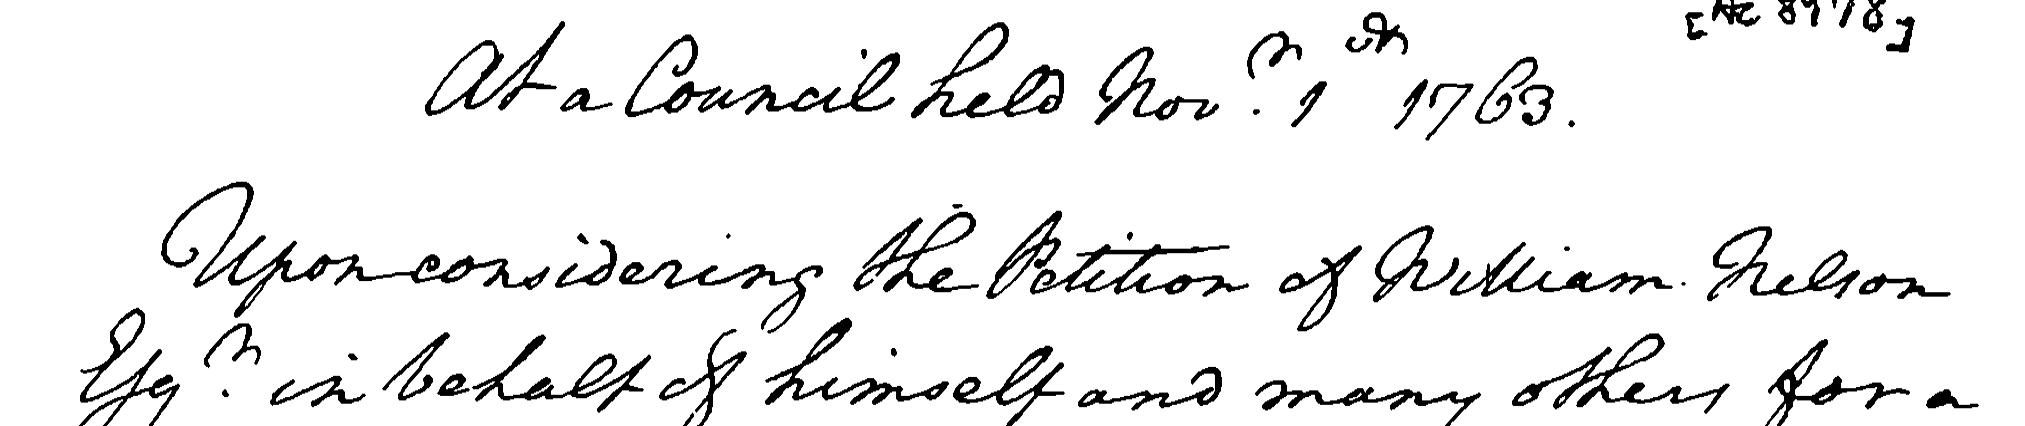 At a Council held Novr. 1st 1763.
Upon considering the Petition of William Nelson
Esqr. in behalf of himself and many others for a